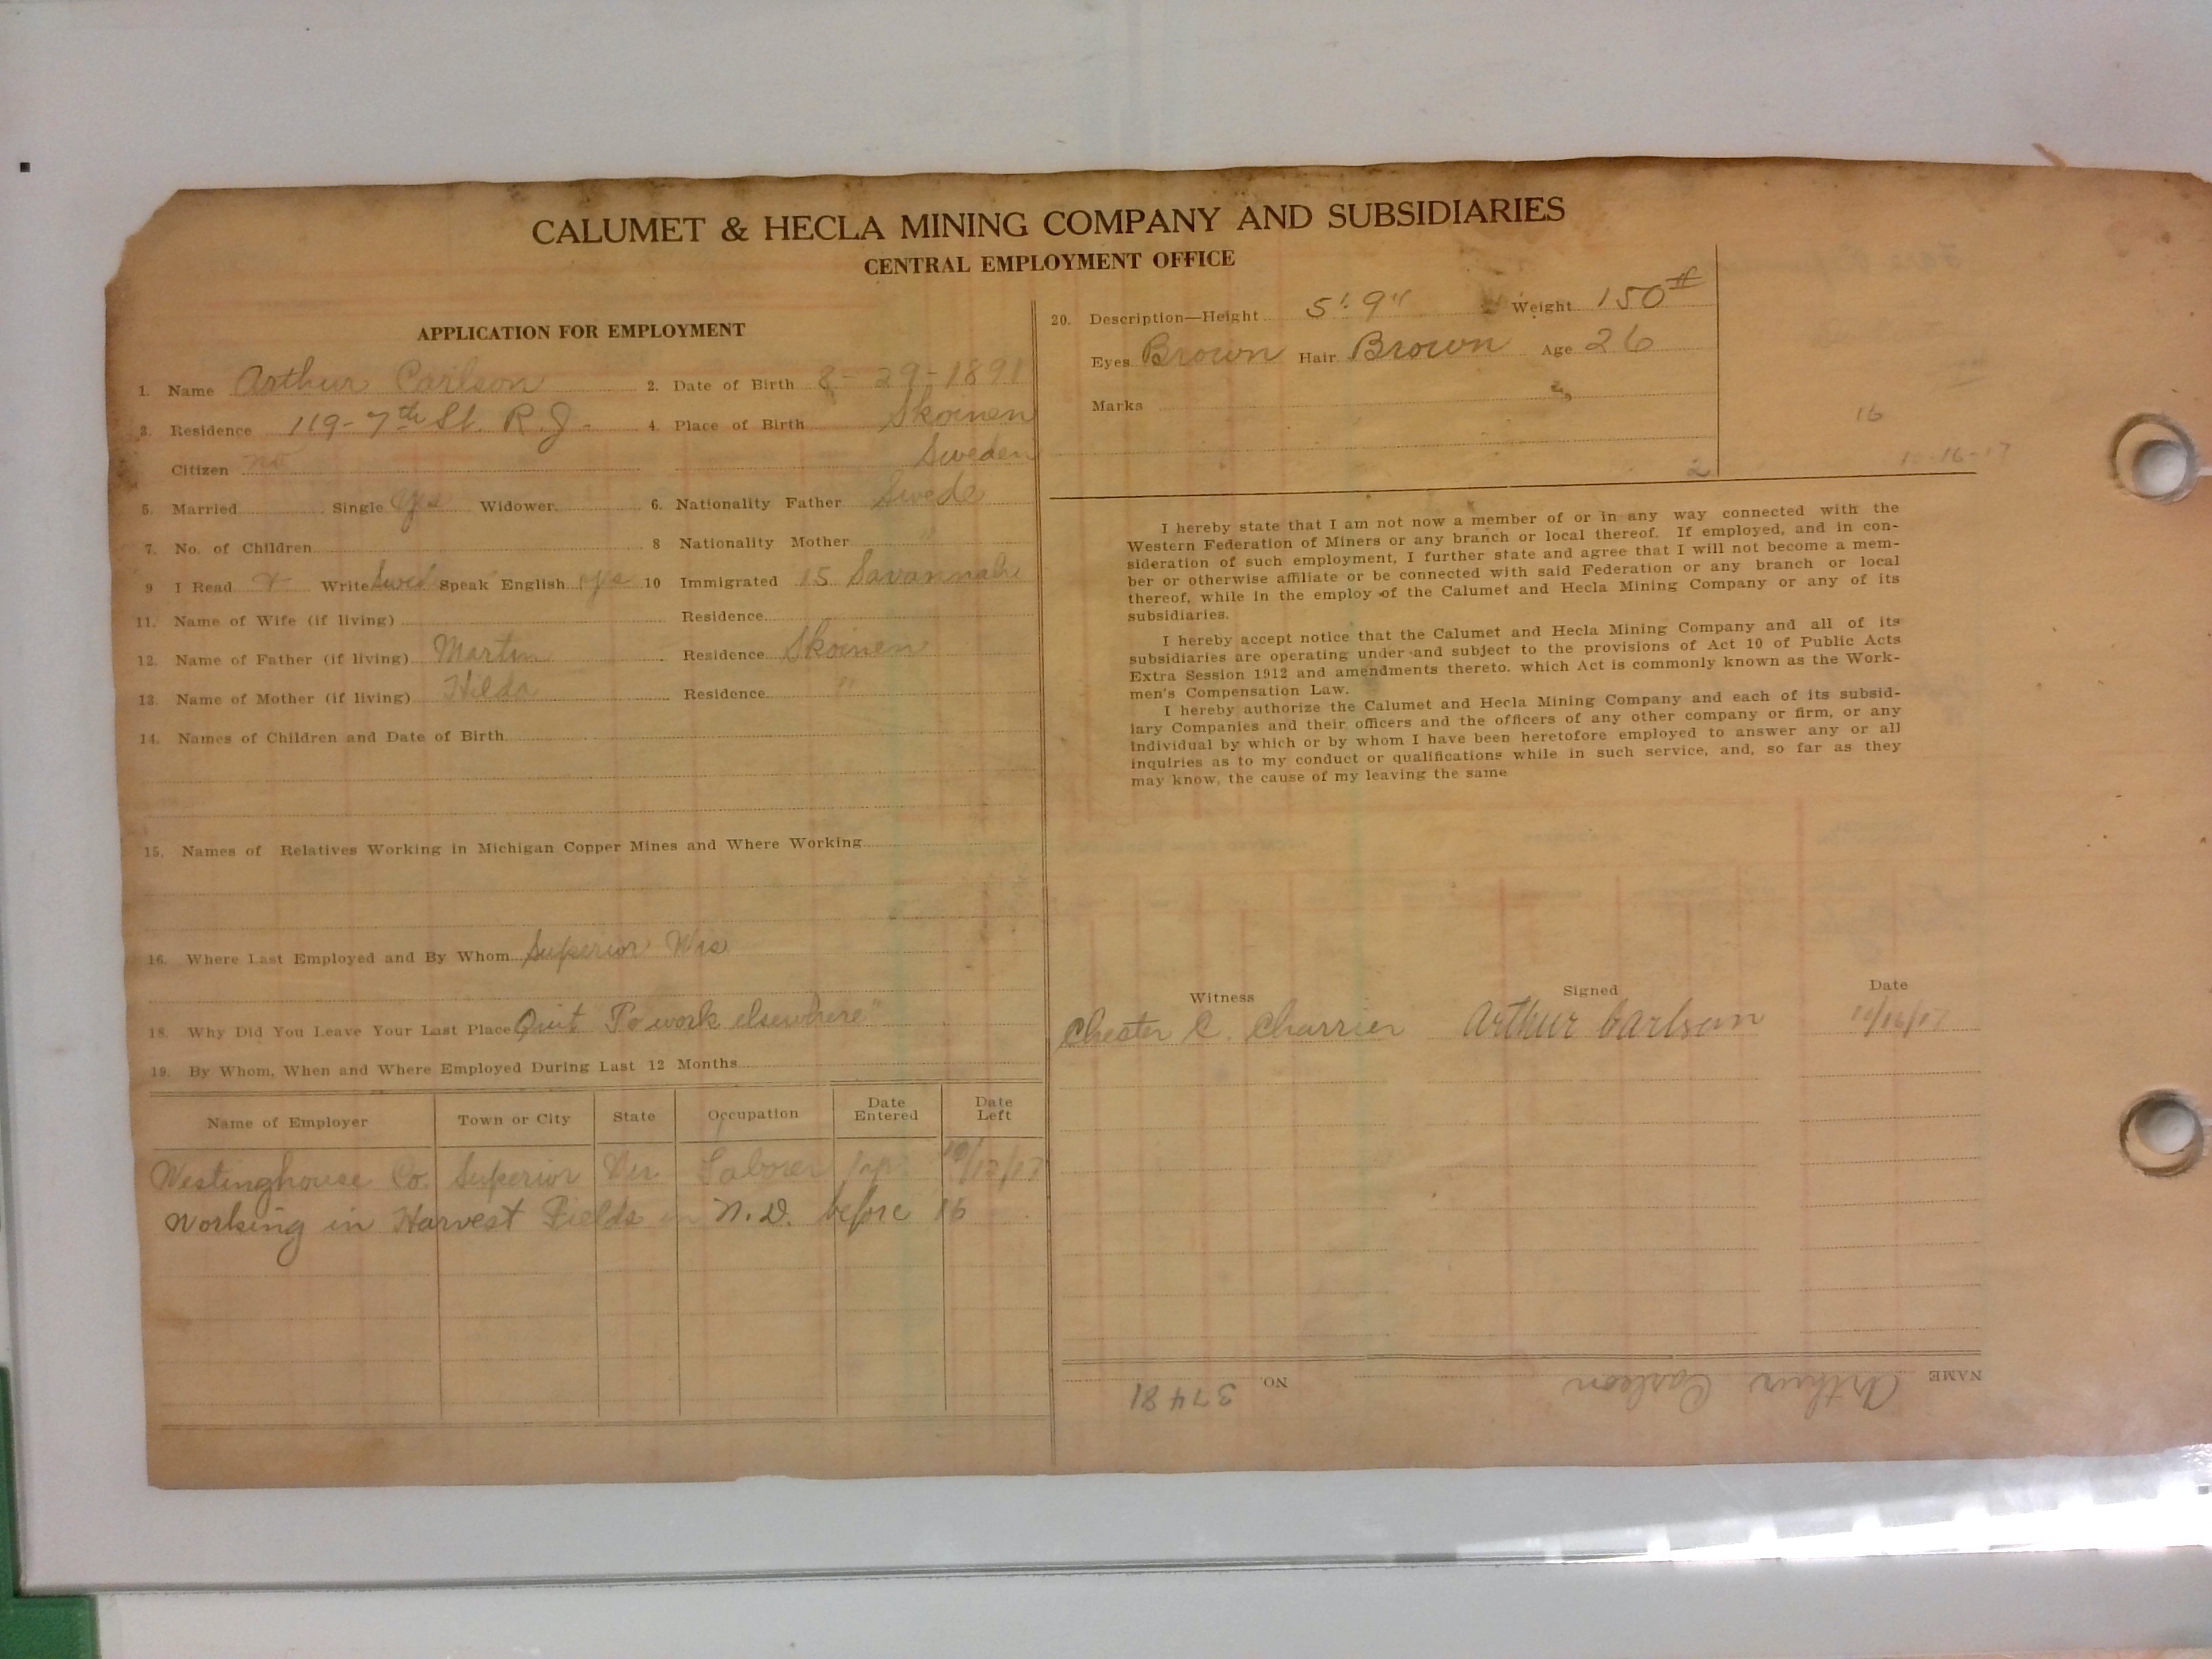 CALUMET & HECLA MINING COMPANY AND SUBSIDIARIES
CENTRAL EMPLOYMENT OFFICE
APPLICATION FOR EMPLOYMENT
1. Name Arthur Carlson 2. Date of Birth 8-29-1891
3. Residence 119-7th St. R.J. 4. Place of Birth Skoinen
Citizen no Sweden
5. Married Single yes Widower 6. Nationality Father Swede
7. No. of Children 8 Nationality Mother "
9 I Read + Write Swed Speak English yes 10 Immigrated 15 Savannah
11. Name of Wife (if living) Residence
12. Name of Father (if living) Martin Residence Skoinen
13. Name of Mother (if living) Hilda Residence "
14. Names of Children and Date of Birth
15. Names of Relatives Working in Michigan Copper Mines and Where Working
16. Where Last Employed and By Whom Superior Wis
18. Why Did You Leave Your Last Place Quit "To work elsewhere"
19. By Whom, When and Where Employed During Last 12 Months
Name of Employer Town or City State Occupation Date Entered Date Left
Westinghouse Co. Superior Wis Laborer 10/12/17
Working in Harvest Fields in N.D. before 16
20. Description—Height 5' 9" Weight 150#
Eyes Brown Hair Brown Age 26
Marks
2
16
10-16-17
I hereby state that I am not now a member of or in any way connected with the
Western Federation of Miners or any branch or local thereof. If employed, and in con-
sideration of such employment, I further state and agree that I will not become a mem-
ber or otherwise affiliate or be connected with said Federation or any branch or local
thereof, while in the employ of the Calumet and Hecla Mining Company or any of its
subsidiaries.
I hereby accept notice that the Calumet and Hecla Mining Company and all of its
subsidiaries are operating under and subject to the provisions of Act 10 of Public Acts
Extra Session 1912 and amendments thereto. which Act is commonly known as the Work-
men's Compensation Law.
I hereby authorize the Calumet and Hecla Mining Company and each of its subsid-
iary Companies and their officers and the officers of any other company or firm, or any
individual by which or by whom I have been heretofore employed to answer any or all
inquiries as to my conduct or qualifications while in such service, and, so far as they
may know, the cause of my leaving the same
Witness Signed Date
Chester C. Charrier Arthur Carlson 10/16/17
NAME Arthur Carlson NO. 37481